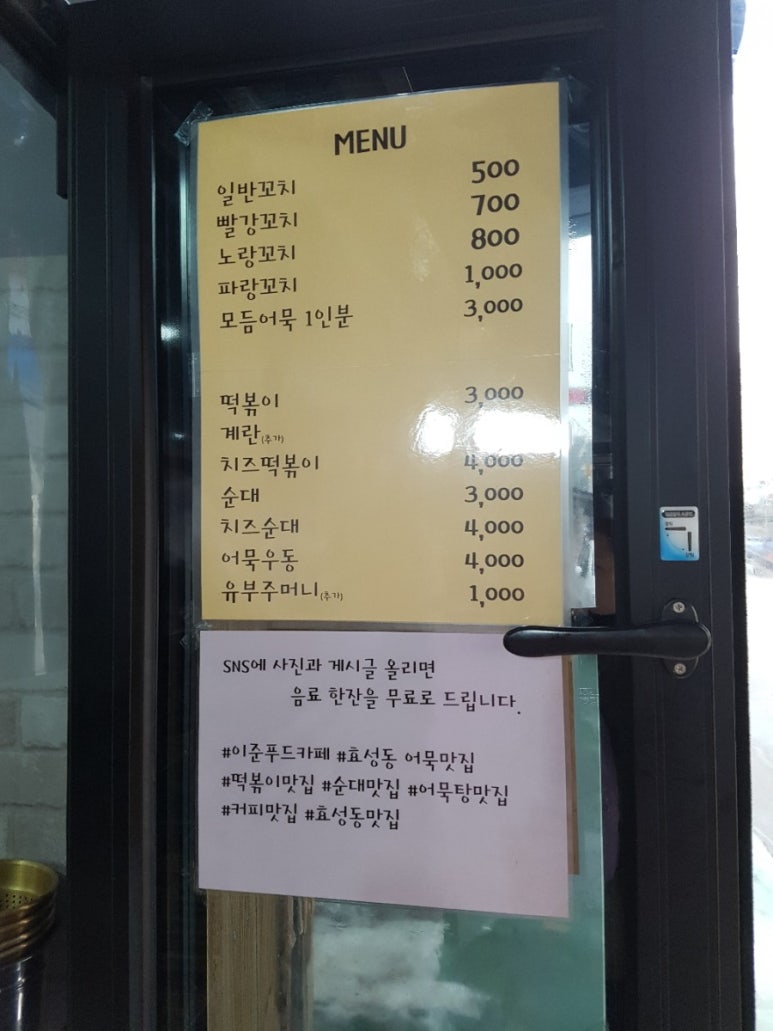 MENU
일반꼬치 500
빨강꼬치 700
노랑꼬치 800
파랑꼬치 1,000
모듬어묵 1인분 3,000
떡볶이 3,000
계란(추가)
치즈떡볶이 4,000
순대 3,000
치즈순대 4,000
어묵우동 4,000
유부주머니(추가) 1,000
SNS에 사진과 게시글 올리면
음료 한잔을 무료로 드립니다.
#이준푸드카페 #효성동 어묵맛집
#떡볶이맛집 #순대맛집 #어묵탕맛집
#커피맛집 #효성동맛집